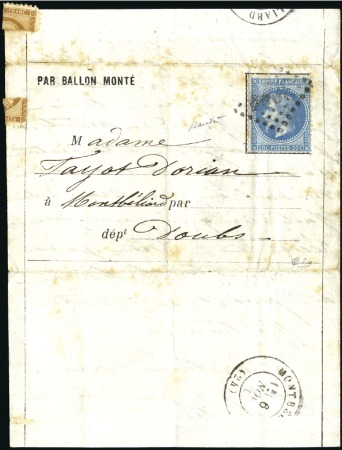 LLARD
PAR BALLON MONTÉ
EMPIRE FRANÇAIS
20C POSTES 20C
Madame
Tayot Dorian
à Montbéliard par
dépt Doubs
MONTB
NOV
(24)